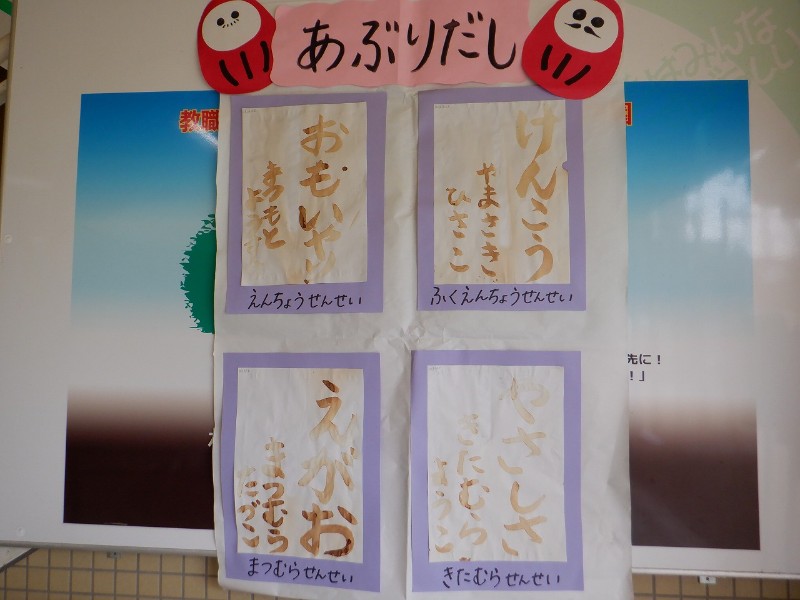 あぶりだし
教職
おもいやり
まつもと
えんちょうせんせい
けんこう
やまさき
ひさこ
ふくえんちょうせんせい
えがお
まつむら
まつむらせんせい
やさしさ
きたむら
ようこ
きたむらせんせい
はみんな
先に！
！」